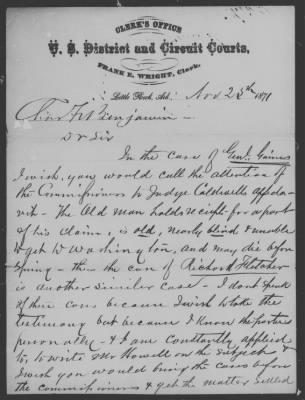 CLERK'S OFFICE
U. S. District and Circuit Courts,
FRANK E. WRIGHT, Clerk.
Little Rock, Ark., Nov 25th 1871
Chas F Benjamin —
Dr Sir
In the case of Genl. Gaines
I wish you would call the attention of
the Commissioners to Judge Caldwells affida-
vit — The Old man holds receipts for a part
of his claim, is old, nearly blind & unable
to get to Washington, and may die before
Spring — then the case of Richard Fletcher
is another similar case — I dont speak
of these cases because I wish to take the
testimony but because I know the parties
personally — & I am constantly applied
to, to write Mr Howell on the subject &
I wish you would bring the cases before
the commissioners & get the matter settled